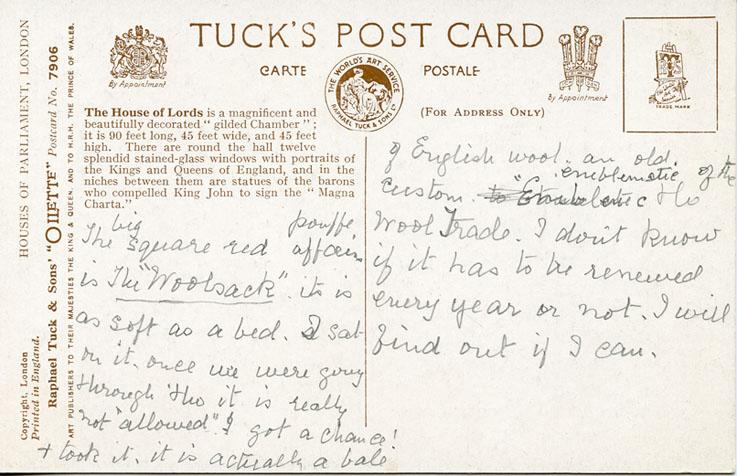 TUCK'S POST CARD
CARTE POSTALE
By Appointment
THE WORLD'S ART SERVICE
RAPHAEL TUCK & SONS LD
By Appointment
TRADE MARK
(FOR ADDRESS ONLY)
HOUSES OF PARLIAMENT, LONDON
Raphael Tuck & Sons' "OILETTE" Postcard No. 7906
ART PUBLISHERS TO THEIR MAJESTIES THE KING & QUEEN, AND TO H.R.H. THE PRINCE OF WALES.
Copyright, London
Printed in England.
The House of Lords is a magnificent and
beautifully decorated "gilded Chamber";
it is 90 feet long, 45 feet wide, and 45 feet
high. There are round the hall twelve
splendid stained-glass windows with portraits of
the Kings and Queens of England, and in the
niches between them are statues of the barons
who compelled King John to sign the "Magna
Charta."
big pouffe
The square red affair
is The "Woolsack". it is
as soft as a bed. I sat
on it. once we were going
through 'tho it is really
not "allowed". I got a chance!
+ took it. it is actually a bale
of English wool. an old.
emblematic of the
custom.
Wool Trade. I don't know
if it has to be renewed
every year or not. I will
find out if I can.